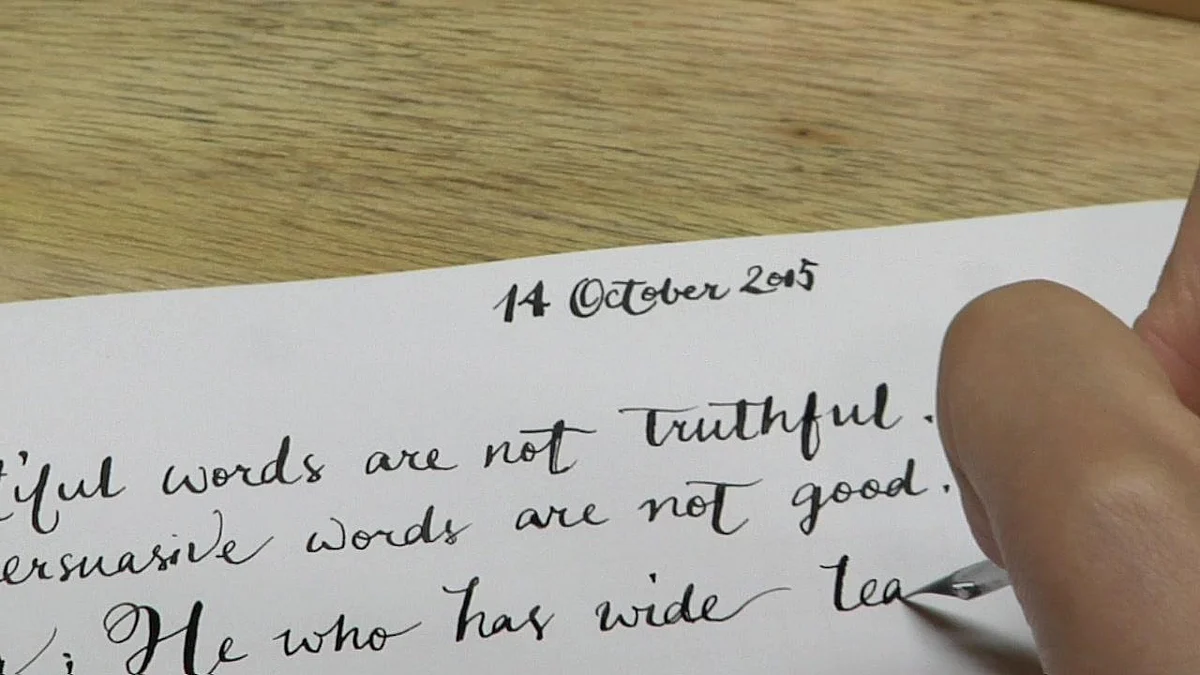 14 October 2015
tiful words are not truthful.
ersuasive words are not good.
; He who has wide lea